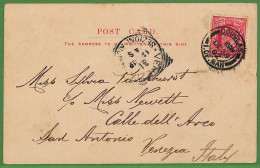 POST CARD.
THE ADDRESS TO BE WRITTEN ON THIS SIDE
Miss Silvia Pankhurst
c/o Miss Newett
Calle dell'Arco
San Antonio Venezia
Italy